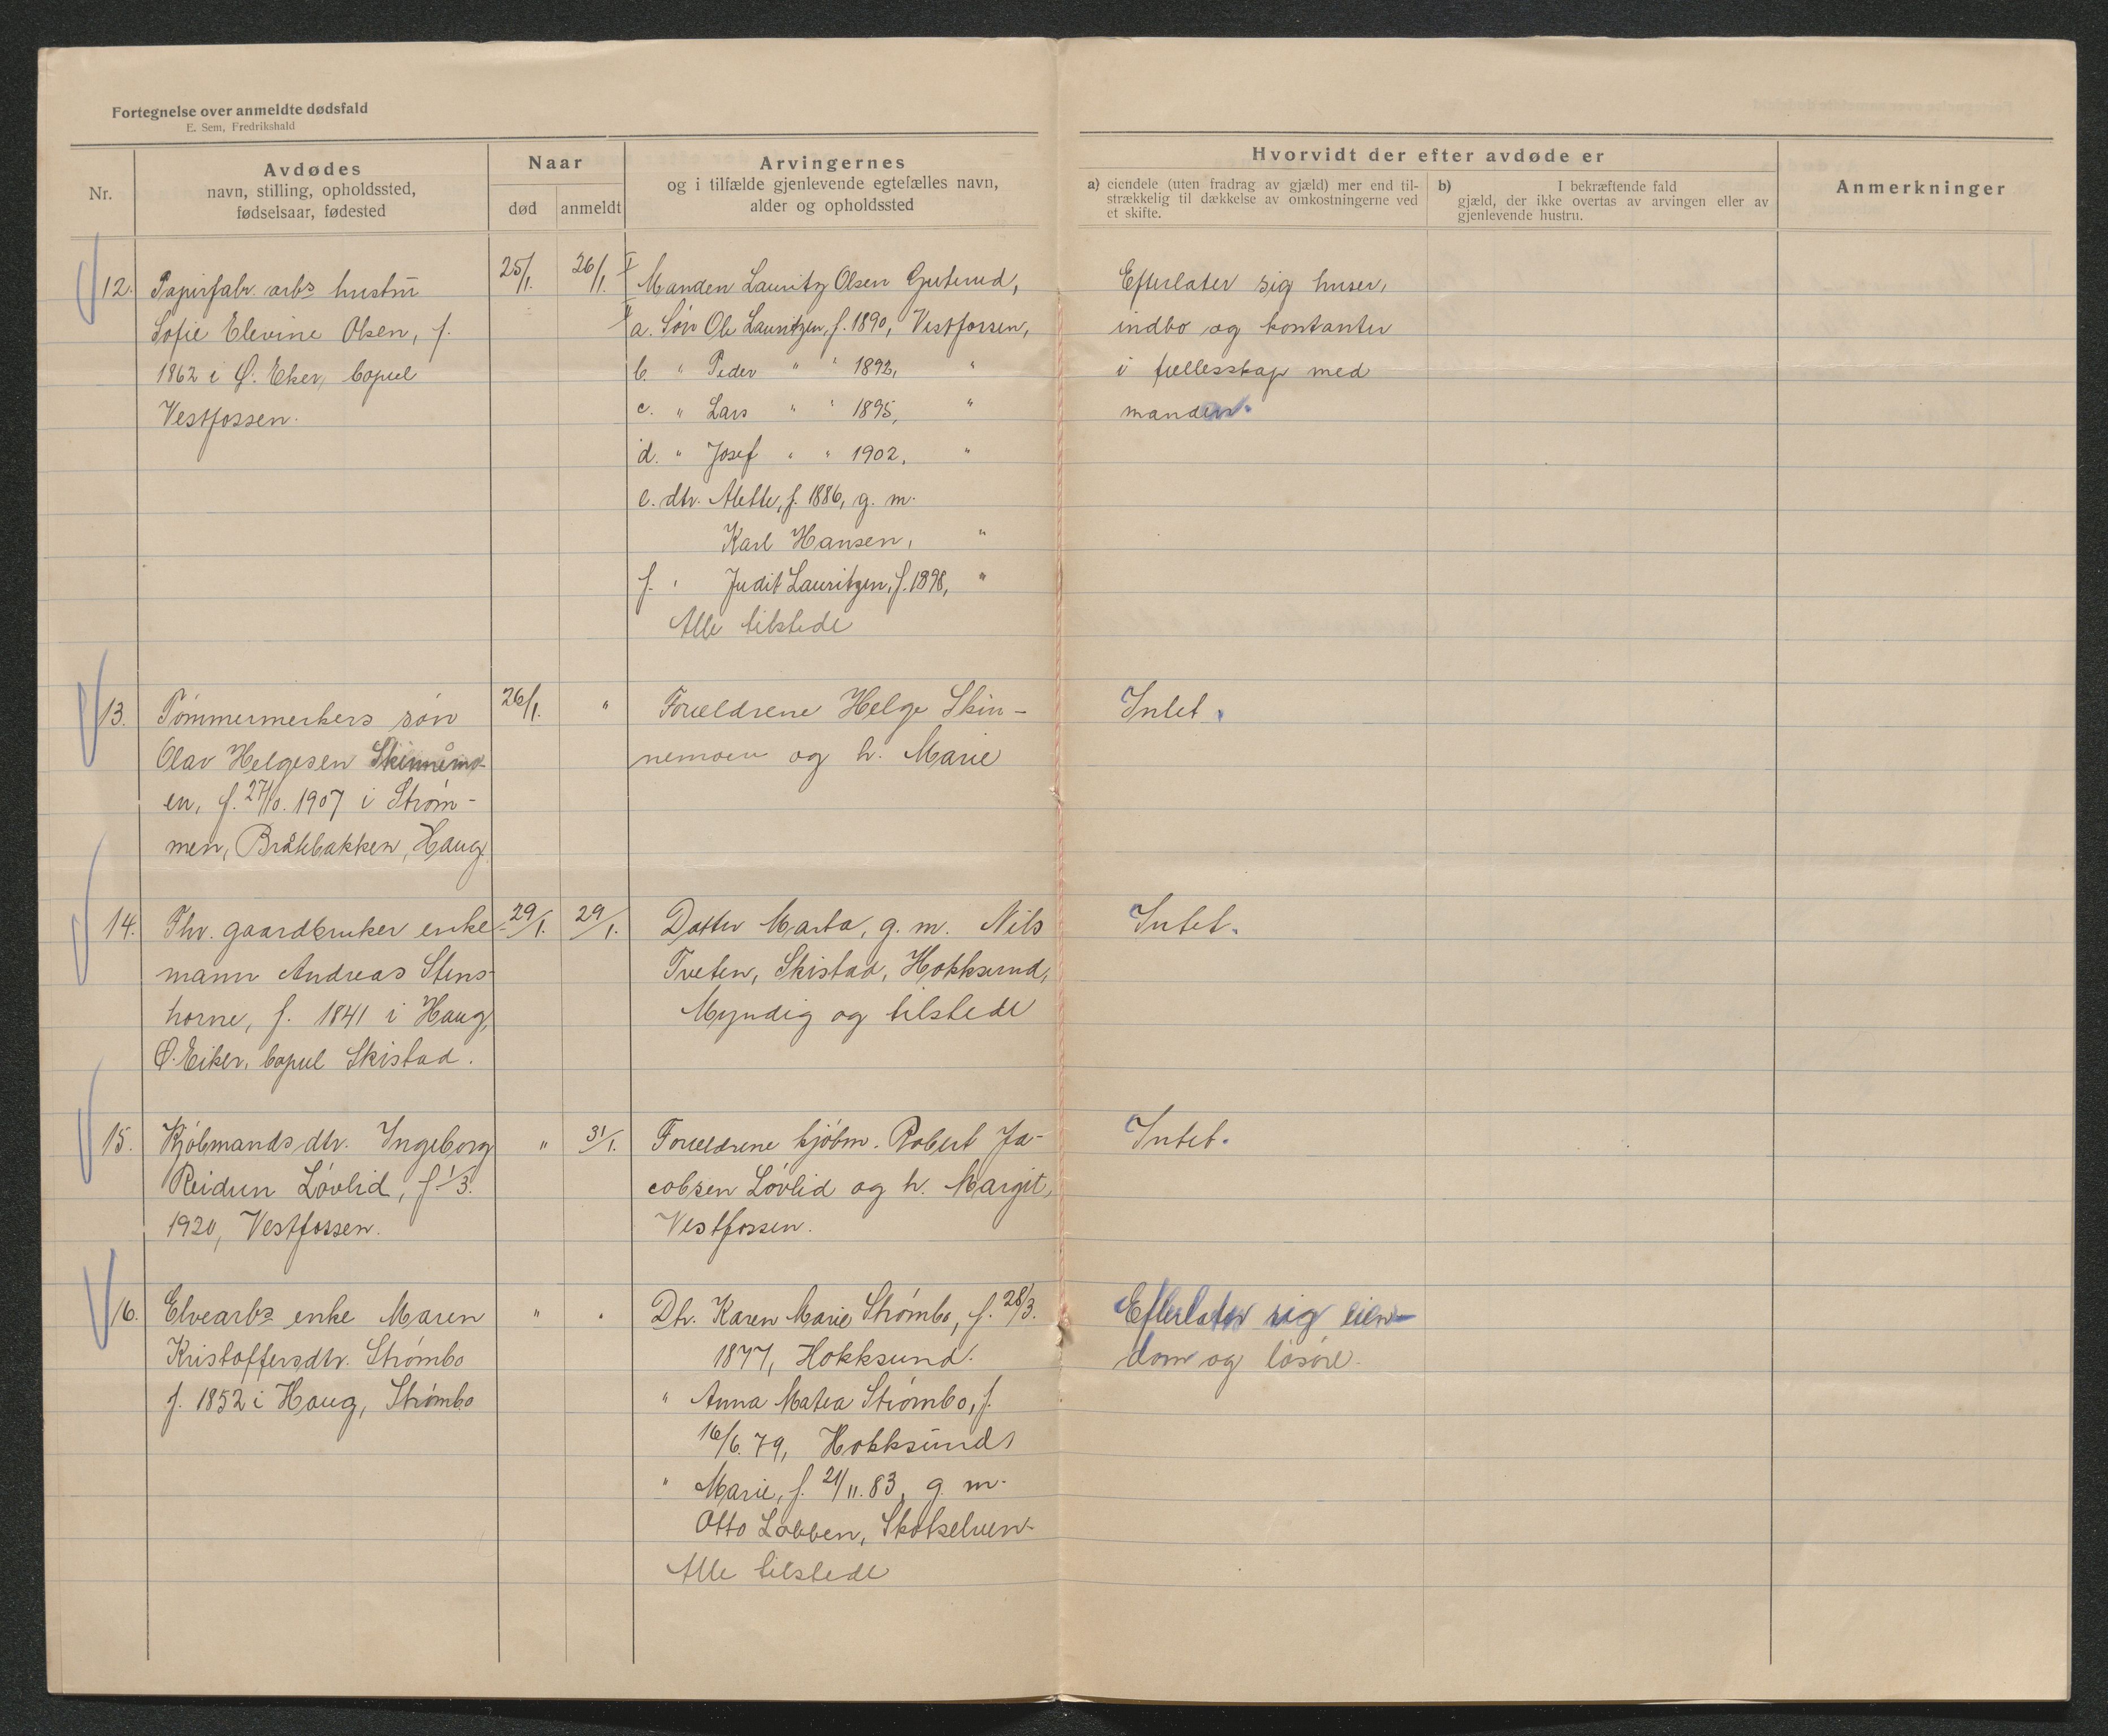 Fortegnelse over anmeldte dødsfald
E. Sem, Fredrikshald
Nr.
Avdødes
navn, stilling, opholdssted,
fødselsaar, fødested
Naar
død
anmeldt
Arvingernes
og i tilfælde gjenlevende egtefælles navn,
alder og opholdssted
Hvorvidt der efter avdøde er
a) eiendele (uten fradrag av gjæld) mer end til-
strækkelig til dækkelse av omkostningerne ved
et skifte.
b) I bekræftende fald
gjæld, der ikke overtas av arvingen eller av
gjenlevende hustru.
Anmerkninger
12.
Papirfabr. arbs hustru
Sofie Elevine Olsen, f.
1862 i Ø. Eker, bopæl
Vestfossen.
25/1.
26/1.
I Manden Lauritz Olsen Guterud,
II a. Søn Ole Lauritzen, f. 1890, Vestfossen,
b. " Peder " " 1892, "
c. " Lars " " 1895, "
d. " Josef " " 1902, "
e. dtr. Alette, f. 1886, g. m.
Karl Hansen, "
f. " Judit Lauritzen, f. 1898, "
Alle tilstede
Efterlater sig huser,
indbo og kontanter
i fællesskap med
manden.
13.
Tømmermerkers søn
Olav Helgesen Skinnemo-
en, f. 27/10. 1907 i Strøm-
men, Bråtebakken, Haug.
26/1.
"
Forældrene Helge Skin-
nemoen og h. Marie
Intet.
14.
Fhv. gaardbruker enke-
mann Andreas Stens-
horne, f. 1841 i Haug,
Ø. Eiker, bopæl Skistad.
29/1.
29/1.
Datter Marta, g. m. Nils
Tveten, Skistad, Hokksund,
Myndig og tilstede
Intet.
15.
Kjøbmands dtr. Ingeborg
Reidun Løvlid, f. 1/3.
1920, Vestfossen.
"
31/1.
Forældrene kjøbm. Robert Ja-
cobsen Løvlid og h. Margit,
Vestfossen.
Intet.
16.
Elvearbs enke Maren
Kristoffersdtr. Strømbo
f. 1852 i Haug, Strømbo
"
"
Dtr. Karen Marie Strømbo, f. 28/3.
1877, Hokksund.
" Anna Matea Strømbo, f.
16/6. 79, Hokksund,
" Marie, f. 21/11. 83, g. m.
Otto Lobben, Skotselven.
Alle tilstede
Efterlater sig eien-
dom og løsøre.